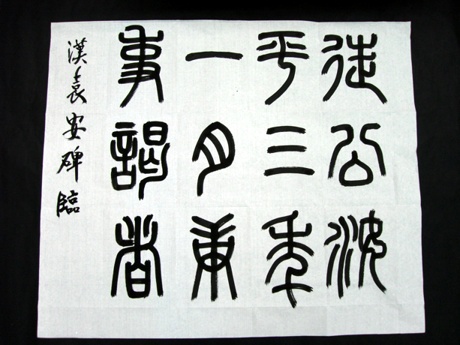 徒公汝
平三年
一月庚
事謁者
漢袁安碑臨